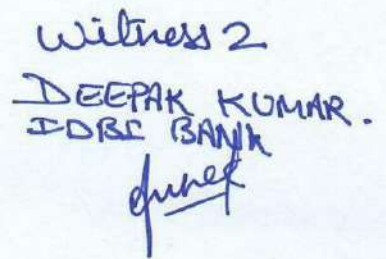 Witness 2
DEEPAK KUMAR.
IDBI BANK